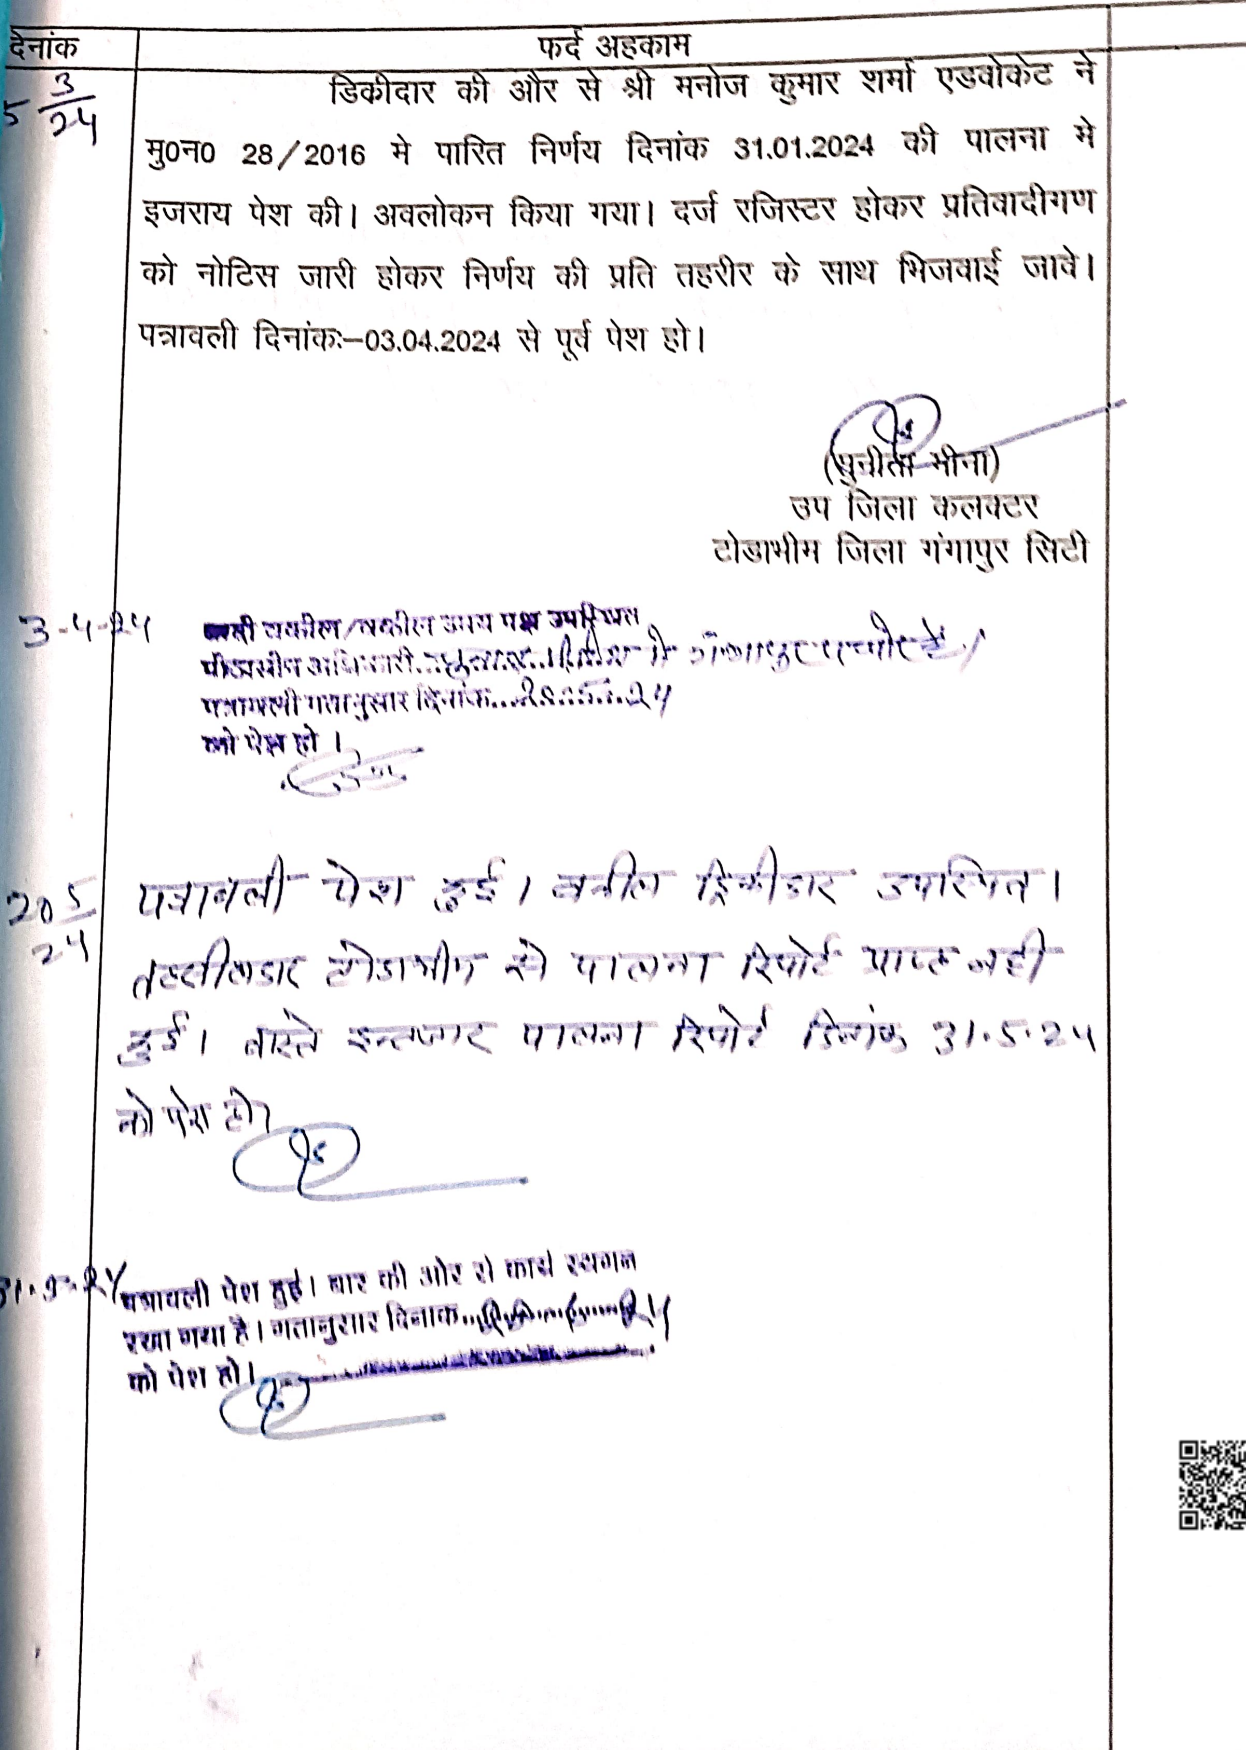 दिनांक
फर्द अहकाम
5 3/24
डिकीदार की और से श्री मनोज कुमार शर्मा एडवोकेट ने
मु0न0 28/2016 मे पारित निर्णय दिनांक 31.01.2024 की पालना मे
इजराय पेश की। अवलोकन किया गया। दर्ज रजिस्टर होकर प्रतिवादीगण
को नोटिस जारी होकर निर्णय की प्रति तहरीर के साथ भिजवाई जावे।
पत्रावली दिनांकः–03.04.2024 से पूर्व पेश हो।
(सुनीता मीना)
उप जिला कलक्टर
टोडाभीम जिला गंगापुर सिटी
3-4-24
वकील/वकील उभय पक्ष उपस्थित
पीठासीन अधिकारी
पत्रावली गतानुसार दिनांक...20.5.24
को पेश हो।
20 5/24
पत्रावली पेश हुई। वकील डिकीदार उपस्थित।
तहसीलदार टोडाभीम से पालना रिपोर्ट प्राप्त नही
हुई। वास्ते इन्तजार पालना रिपोर्ट दिनांक 31.5.24
को पेश हो।
31.5.24
पत्रावली पेश हुई। बार की ओर से कार्य स्थगन
रखा गया है। गतानुसार दिनांक
को पेश हो।